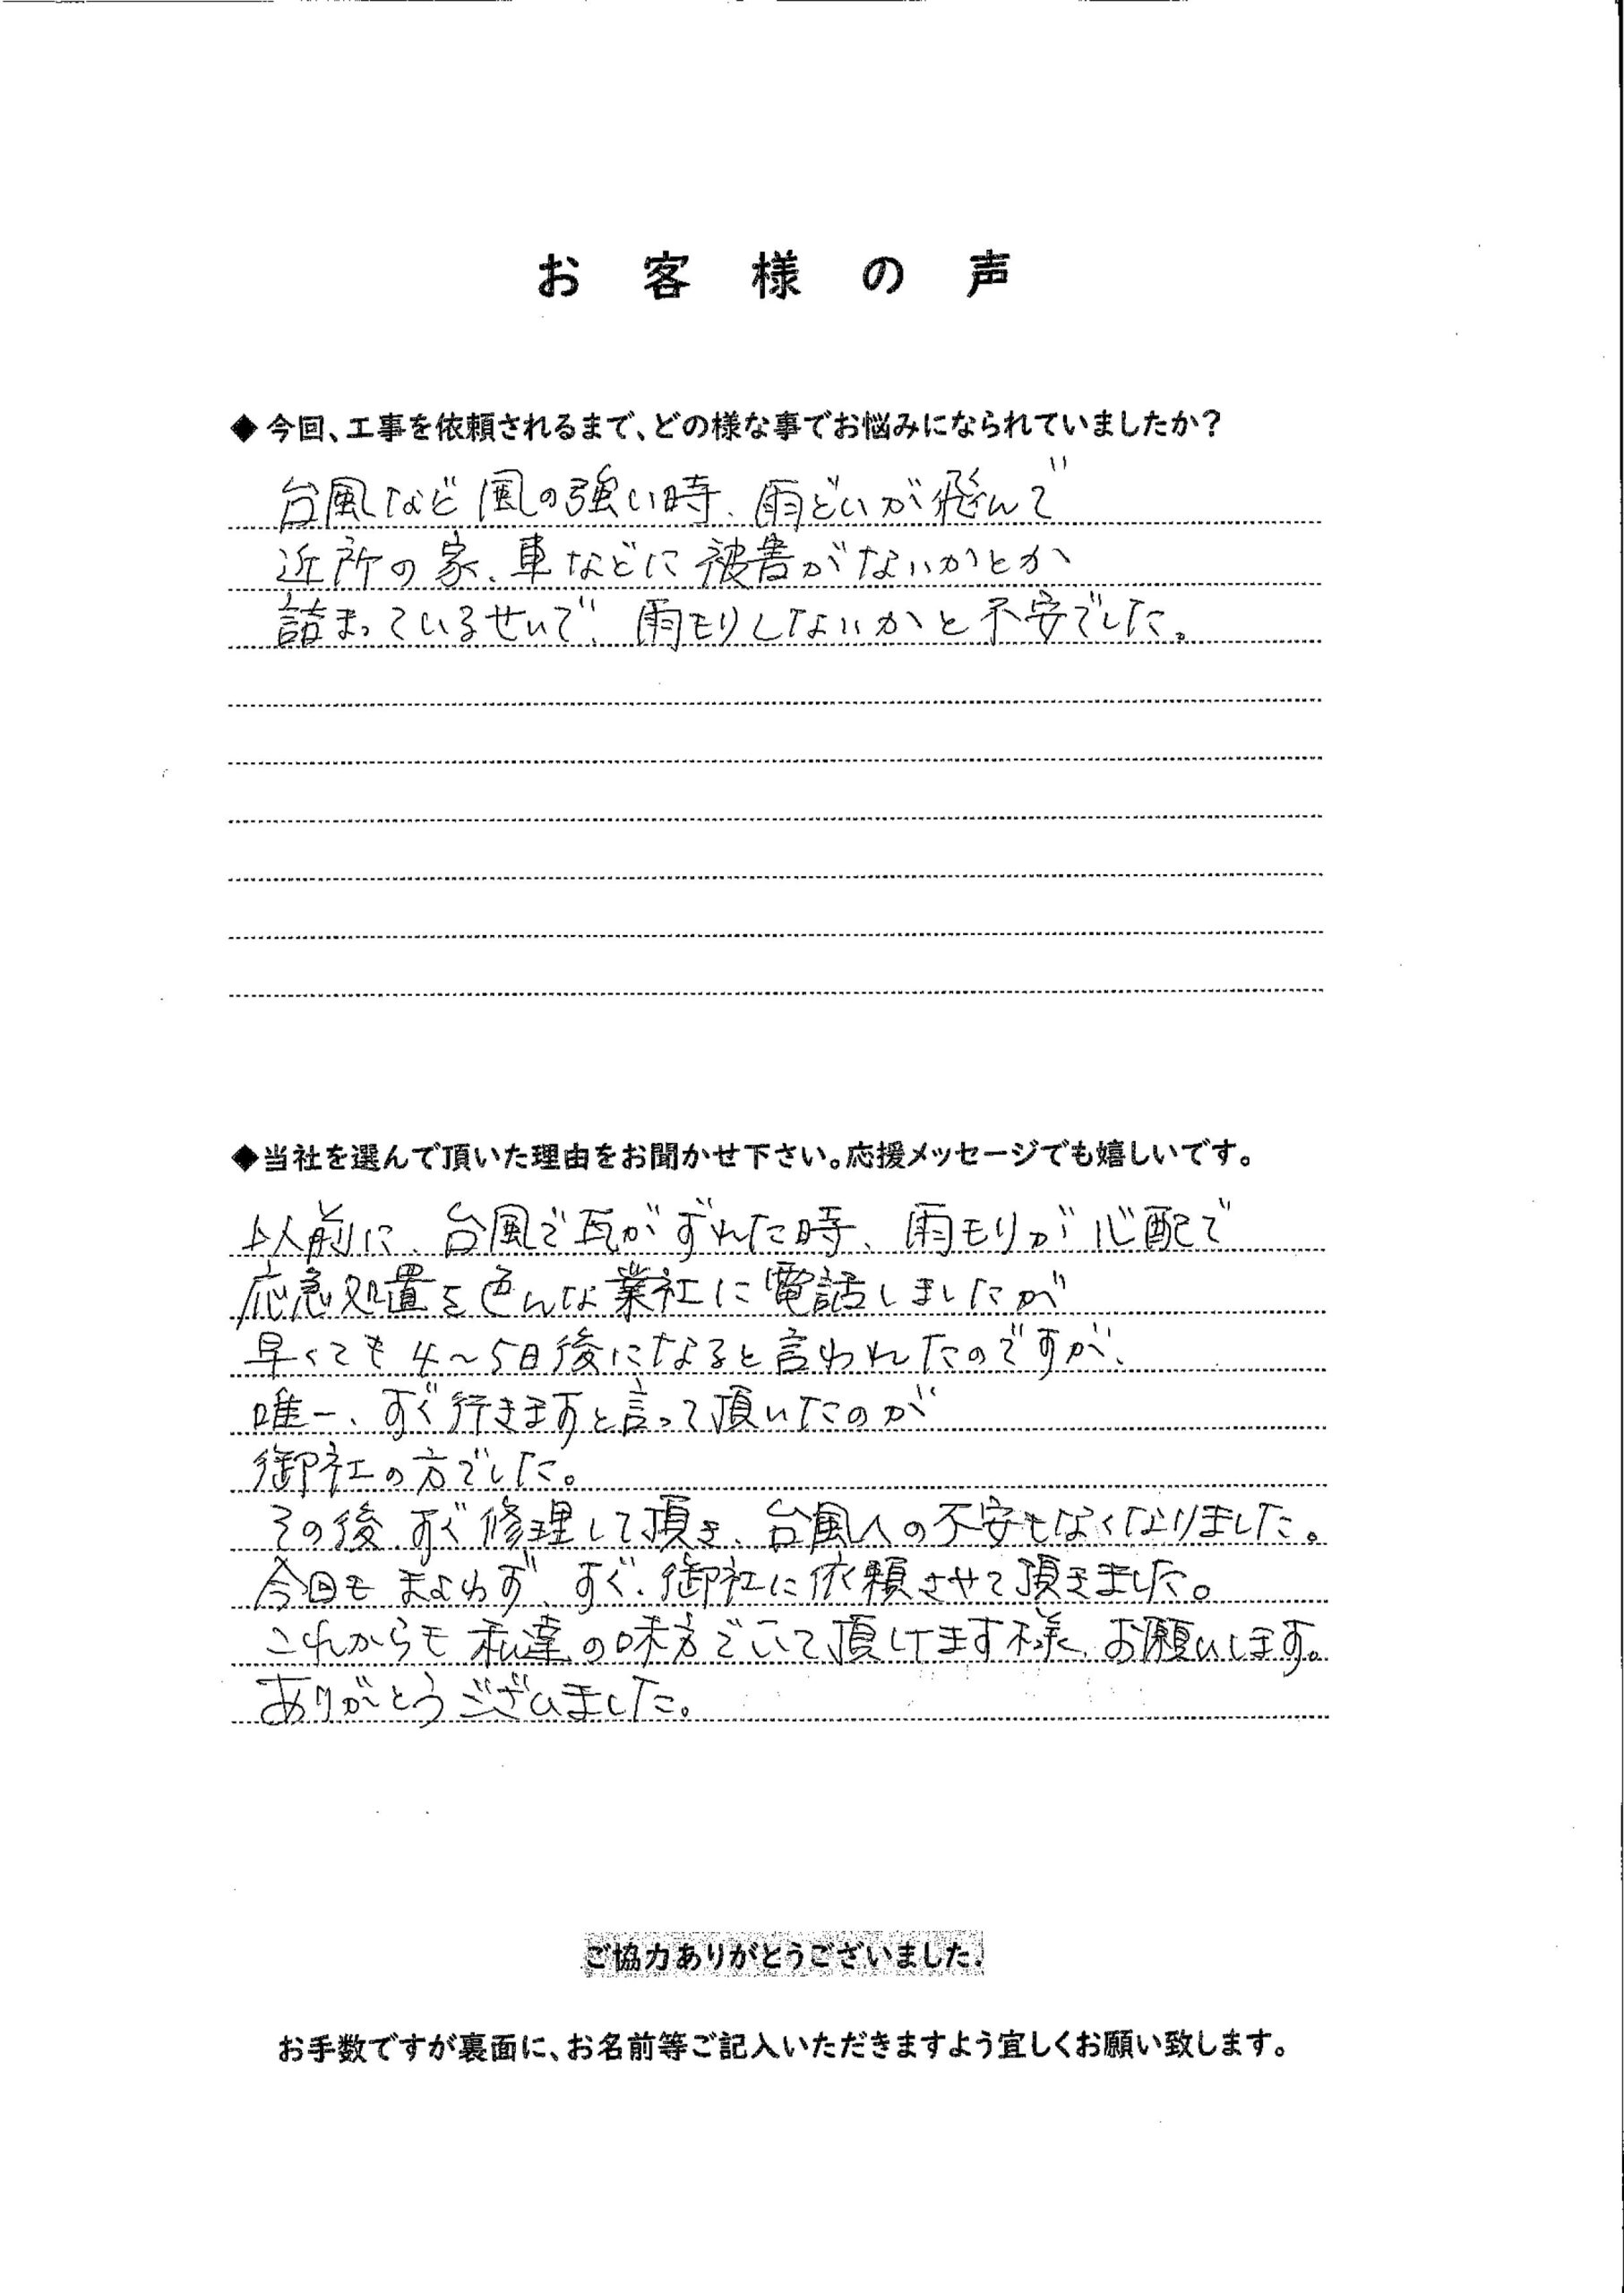 お客様の声
◆今回、工事を依頼されるまで、どの様な事でお悩みになられていましたか?
台風など風の強い時、雨どいが飛んで
近所の家、車などに被害がないかとか
詰まっているせいで、雨モリしないかと不安でした。
◆当社を選んで頂いた理由をお聞かせ下さい。応援メッセージでも嬉しいです。
以前に、台風で瓦がずれた時、雨モリが心配で
応急処置を色んな業社に電話しましたが
早くても4〜5日後になると言われたのですが、
唯一、すぐ行きますと言って頂いたのが
御社の方でした。
その後、すぐ修理して頂き、台風への不安もなくなりました。
今回もまよわず、すぐ、御社に依頼させて頂きました。
これからも私達の味方でいて頂けます様、お願いします。
ありがとうございました。
ご協力ありがとうございました。
お手数ですが裏面に、お名前等ご記入いただきますよう宜しくお願い致します。